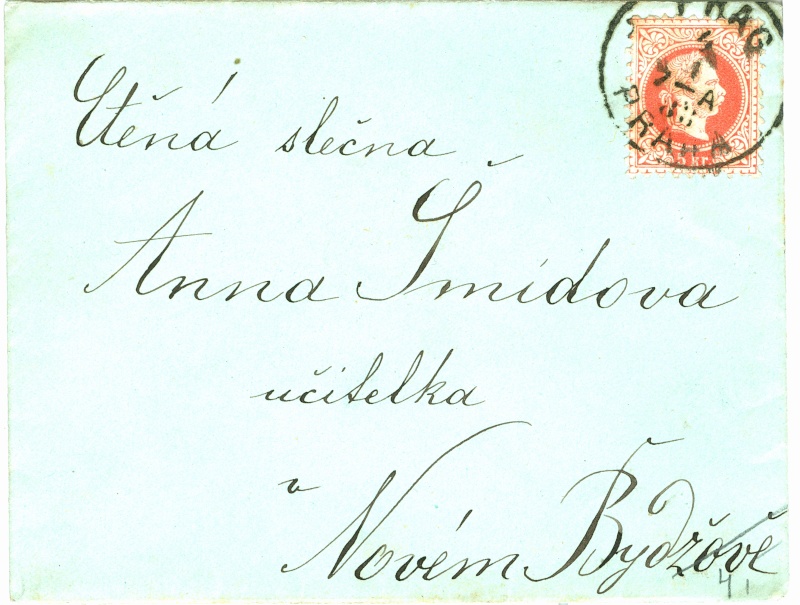 PRAG
4
1
7 A
83
PRAHA
5 kr.
Ctěná slečna
Anna Šmídova
učitelka
v
Novém Bydžově
41